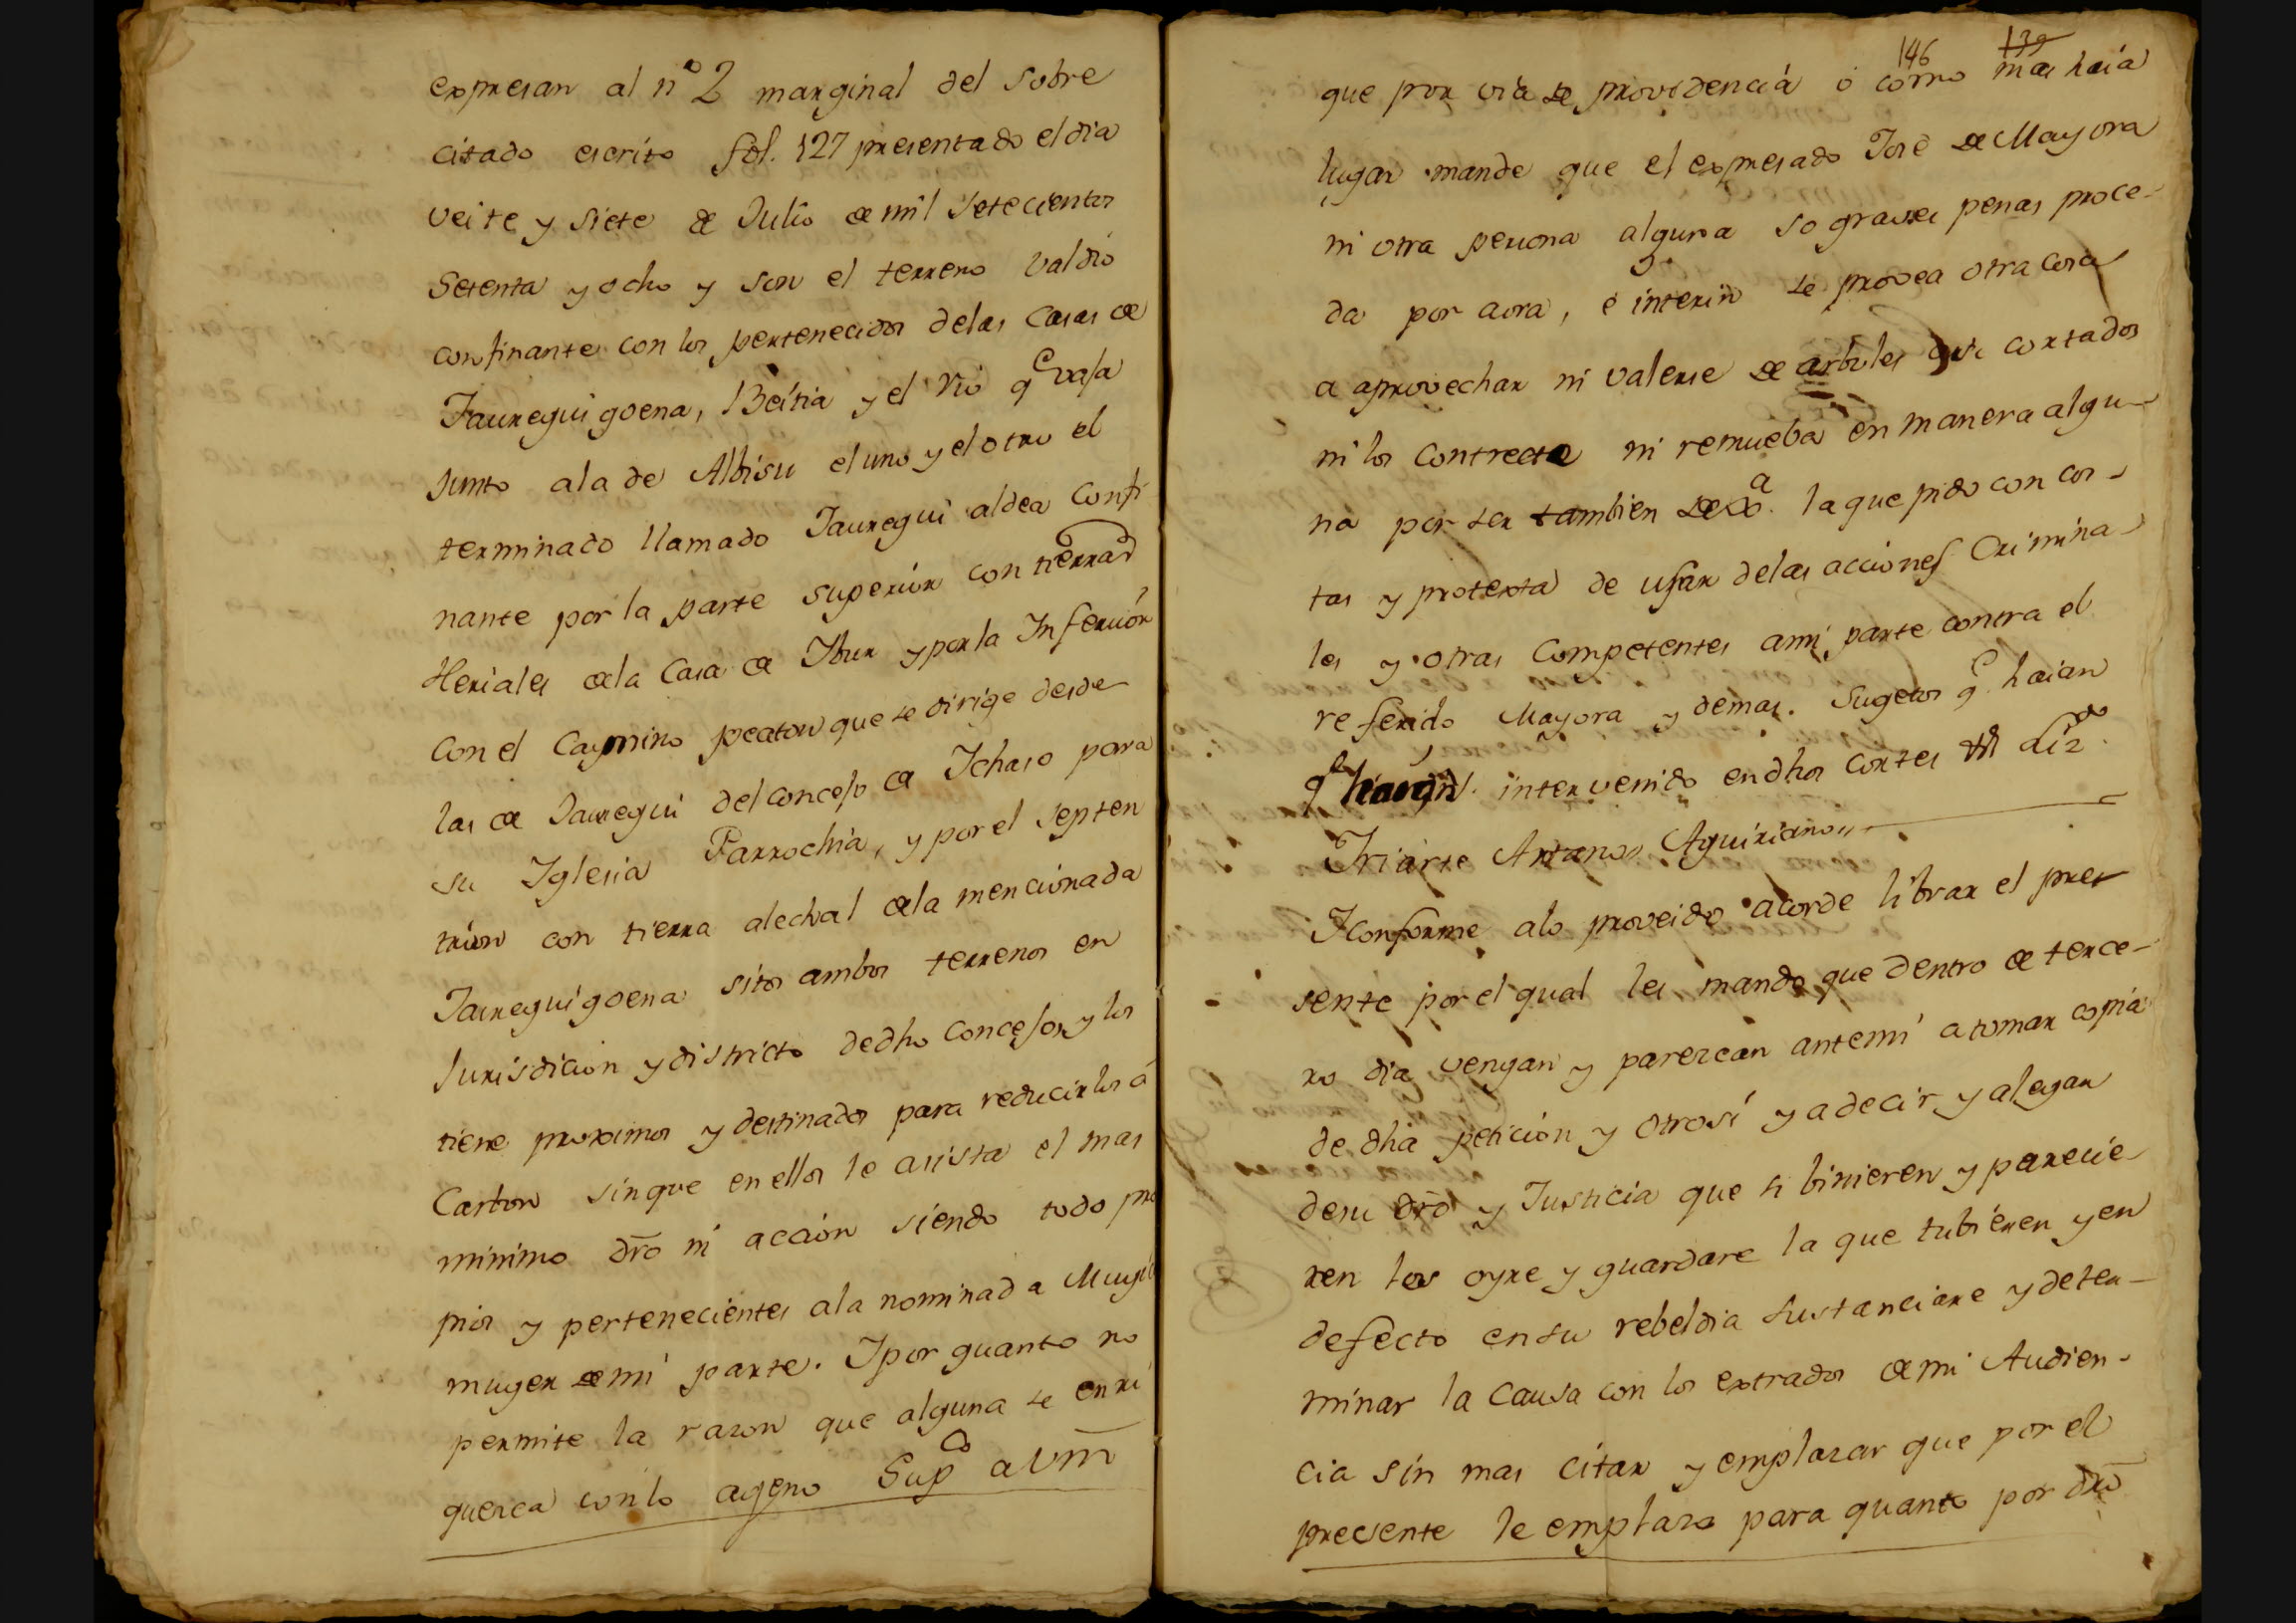 expresan al nº 2 marginal del sobre
citado escrito fol. 127 presentado el dia
veite y siete de Julio de mil setecientos
setenta y ocho y son el terreno valdio
confinante con los pertenecidos delas Casas de
Jaureguigoena, Beitia y el rio qe vaja
Junto ala de Albisu el uno y el otro el
terminado llamado Jauregui aldea confi
nante por la parte superior con tierras
Heriales dela Casa de Ibur y por la Inferior
con el Camino peaton que se dirige desde
las de Jauregui del concejo de Ichaso para
su Iglesia Parrochia, y por el septen
trion con tierra alechal dela mencionada
Jaureguigoena sitos ambos terrenos en
Jurisdicion y districto dedho concejo, y los
tiene proximos y destinados para reducirlos á
Carbon sin que en ellos le asista el mas
minimo dro ni acción siendo todo pro
pios y pertenecientes ala nominada Mugi
muger de mi parte. Y por quanto no
permite la razon que alguna se enri
quezca con lo ageno Supco a Vm
146 139
que por via de providencia ó como mas haia
lugar mande que el expresado José de Mayora
ni otra persona alguna so graves penas proce-
da por aora, é interin se provea otra cosa
a aprovechar ni valerse de arboles qe cortados
ni los contrecte ni remueba en manera algu-
na por ser tambien de Jª. la que pido con cos-
tas y protexta de usar delas acciones Crimina-
les y otras Competentes ami parte contra el
referido Mayora y demas. Sugetos qe. haian
qe haian. intervenido en dhos cortes Lizdo.
Iriarte Artano, Aguiriano,,
Y conforme alo proveido acorde librar el pre
sente por el qual les mando que dentro de terce-
ro dia vengan y parezcan antemi a tomar copia
de dha petición y otrosí y a decir y alegar
desu dro y Justicia que si binieren y parecie
ren los oyre y guardare la que tubieren y en
defecto en su rebeldia sustanciare y deter-
minar la causa con los extrados de mi Audien-
cia sin mas citar y emplazar que por el
precente le emplazo para quanto por dro